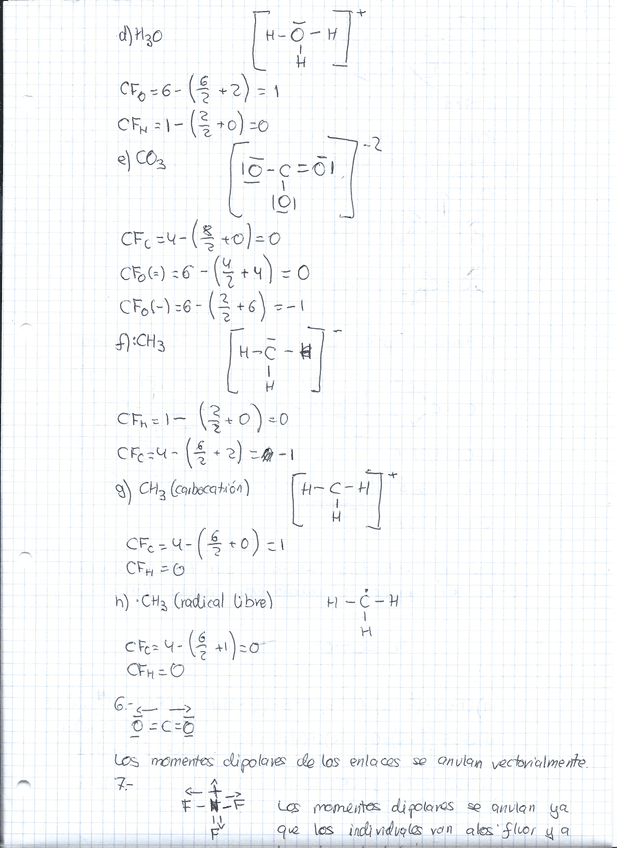 d) H₃O [H-O̅-H]⁺
|
H
CF₀ = 6 - (6/2 + 2) = 1
CFₕ = 1 - (2/2 + 0) = 0
e) CO₃ [|O̅-C=O̅|]⁻²
|
|O|
CF꜀ = 4 - (8/2 + 0) = 0
CF₀(=) = 6 - (4/2 + 4) = 0
CF₀(-) = 6 - (2/2 + 6) = -1
f) :CH₃ [H-C̅-H]⁻
|
H
CFₕ = 1 - (2/2 + 0) = 0
CF꜀ = 4 - (6/2 + 2) = -1
g) CH₃ (carbocatión) [H-C-H]⁺
|
H
CF꜀ = 4 - (6/2 + 0) = 1
CFH = 0
h) ·CH₃ (radical libre) H-Ċ-H
|
H
CF꜀ = 4 - (6/2 + 1) = 0
CFH = 0
6.- ← →
O̅=C=O̅
Los momentos dipolares de los enlaces se anulan vectorialmente.
7.-
F-N-F Los momentos dipolares se anulan ya
F que los individuales van a los fluor y a